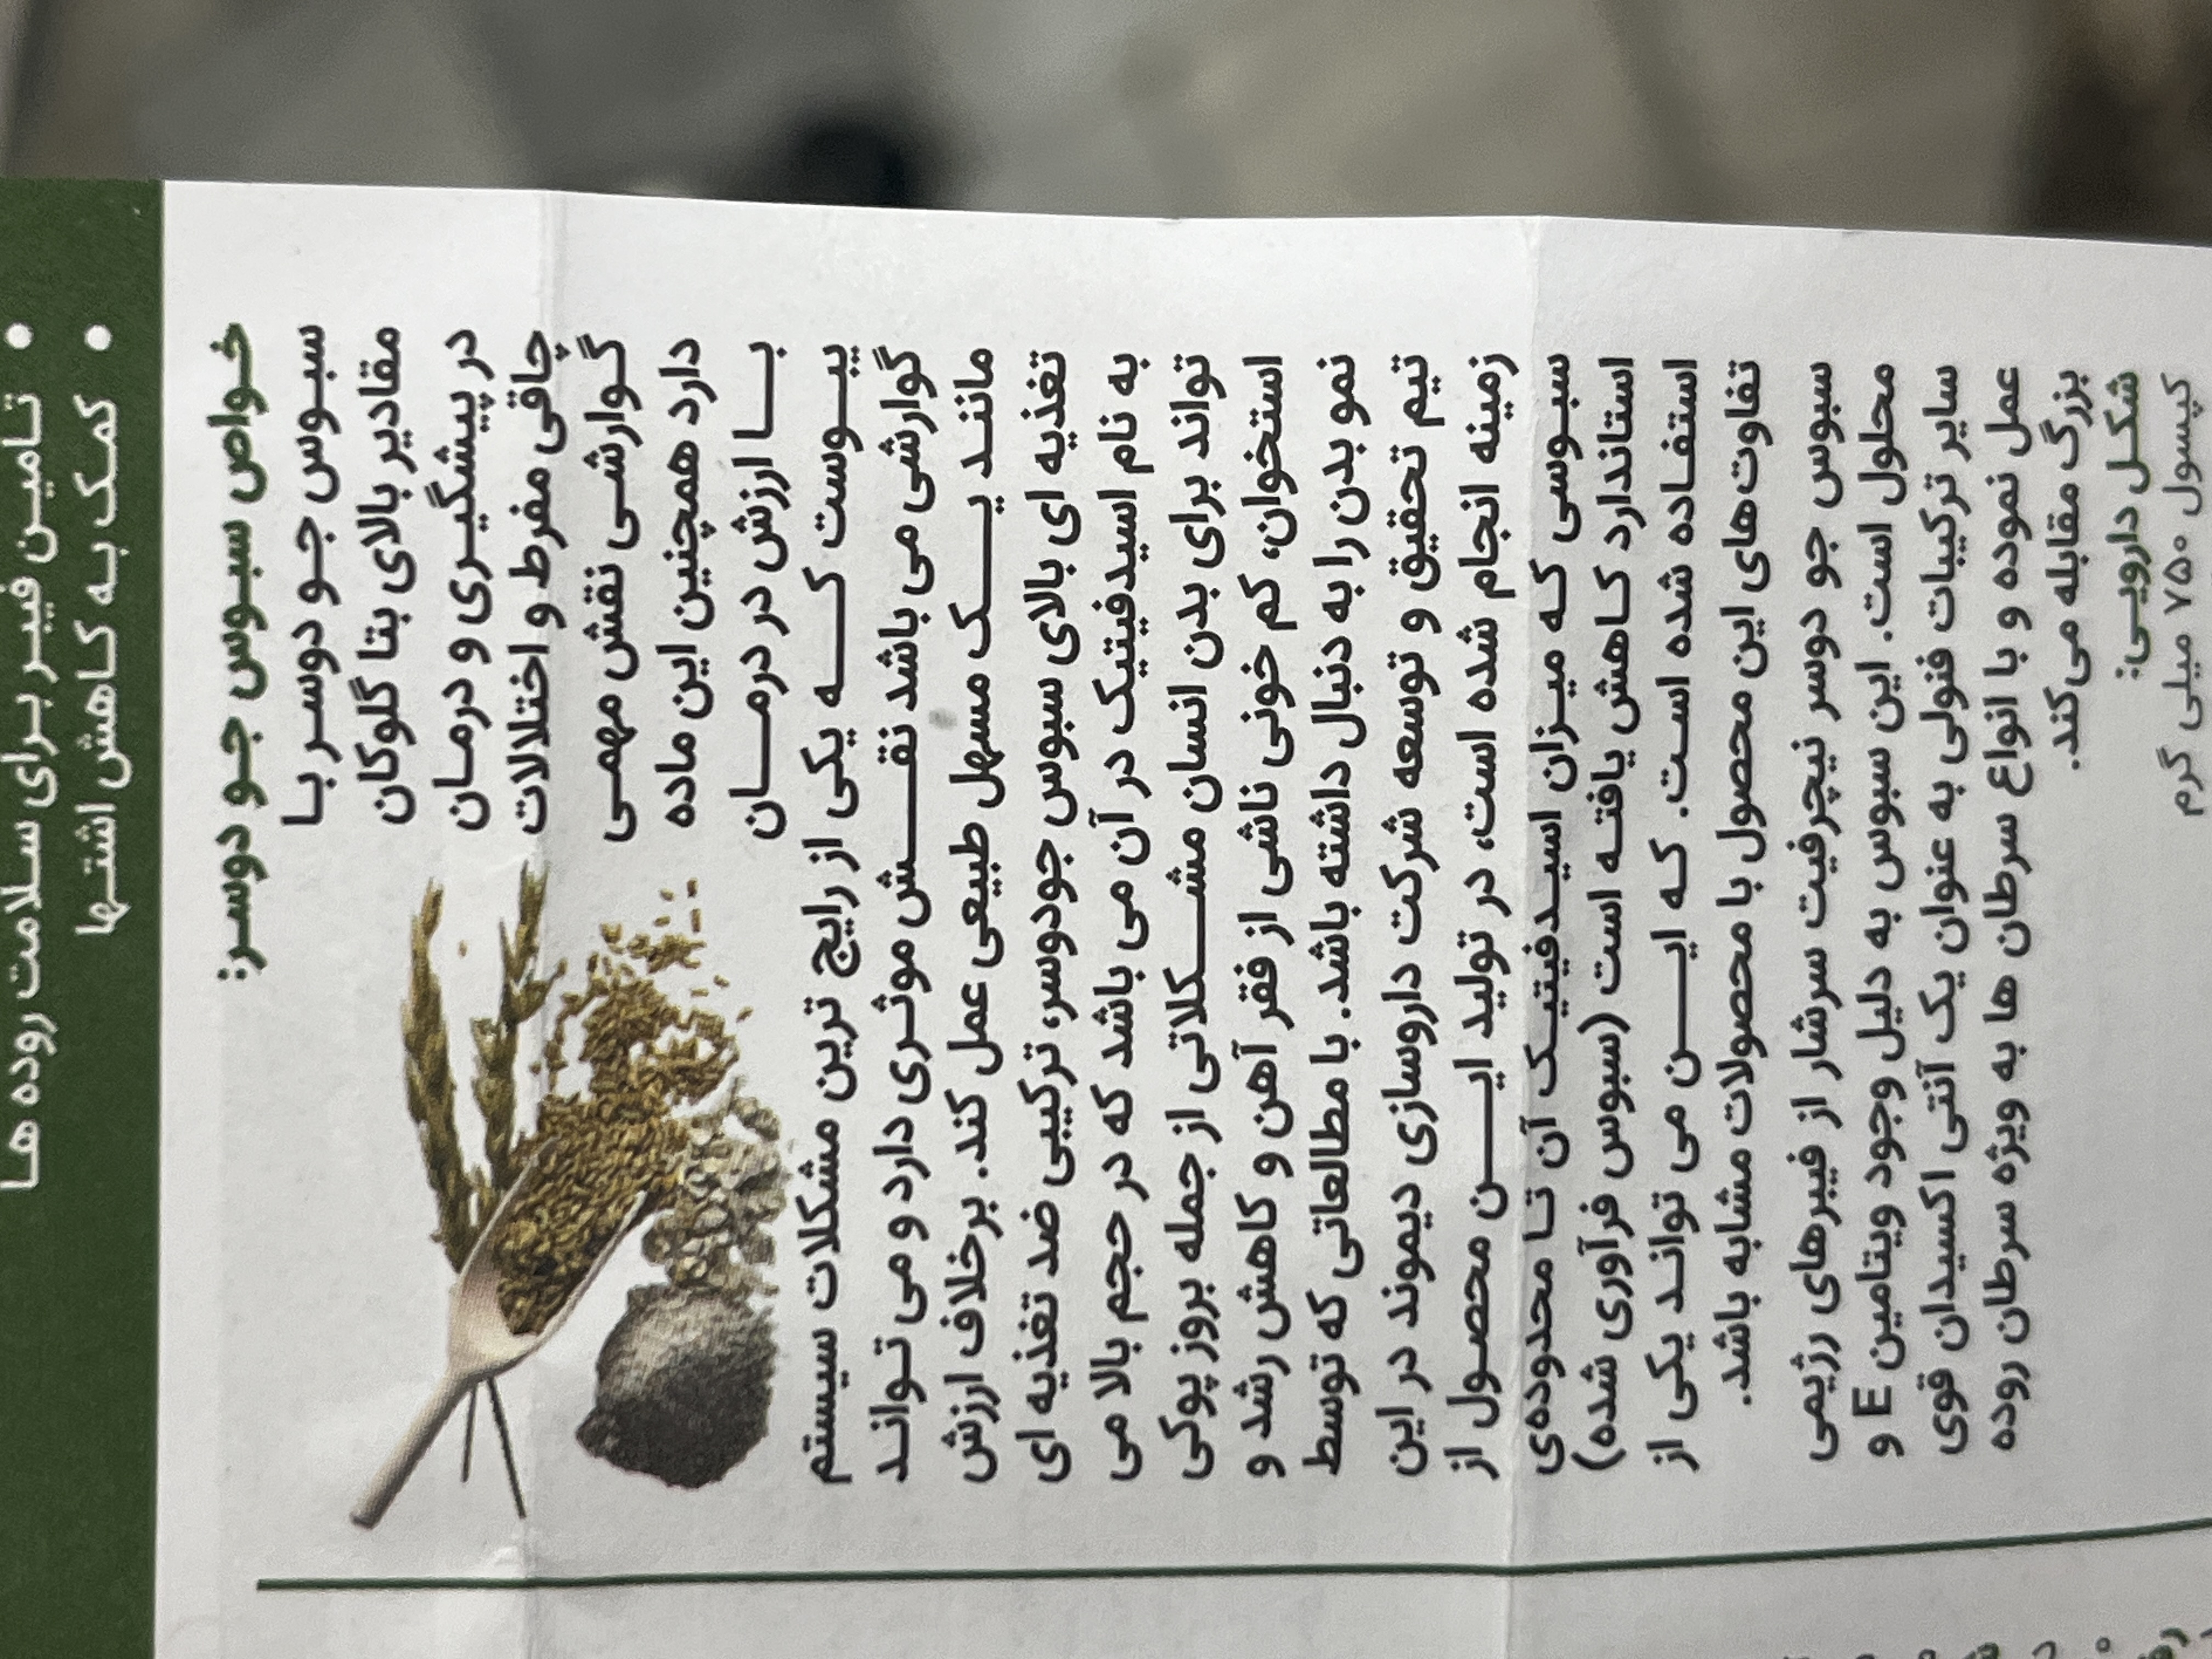 تـامیـن فیبـر بـرای سـلامت روده هـا
کمـک بـه کـاهـش اشتـها
خـواص سبـوس جـو دوسـر:
سبـوس جـو دوسـر بـا
مقادیر بالای بتا گلوکان
در پیشگیـری و درمـان
چاقی مفرط و اختلالات
گـوارشـی نقـش مهمـی
دارد همچنین این ماده
بـــا ارزش در درمـــان
یبـــوست کـــه یکی از رایج ترین مشکلات سیستم
گوارشی می باشد نقـــش موثـری دارد و می تـوانـد
ماننـد یـــک مسهل طبیعی عمل کند. برخلاف ارزش
تغذیه ای بالای سبوس جودوسر، ترکیبی ضد تغذیه ای
به نام اسیدفیتیک در آن می باشد که در حجم بالا می
تواند برای بدن انسان مشـــکلاتی از جمله بروز پوکی
استخوان، کم خونی ناشی از فقر آهن و کاهش رشد و
نمو بدن را به دنبال داشته باشد. با مطالعاتی که توسط
تیم تحقیق و توسعه شرکت داروسازی دیموند در این
زمینه انجام شده است، در تولید ایـــن محصـول از
سبـوسی کـه میـزان اسیـدفیتیـک آن تـا محدوده‌ی
استاندارد کـاهش یافتـه است (سبوس فرآوری شده)
استفـاده شده اسـت. کـه ایـــن می توانـد یکی از
تفاوت‌های این محصول با محصولات مشابه باشد.
سبوس جو دوسر نیچرفیت سرشار از فیبرهای رژیمی
محلول است. این سبوس به دلیل وجود ویتامین E و
سایر ترکیبات فنولی به عنوان یک آنتی اکسیدان قوی
عمل نموده و با انواع سرطان ها به ویژه سرطان روده
بزرگ مقابله می‌کند.
شکـل دارویـی:
کپسول ۷۵۰ میلی گرم